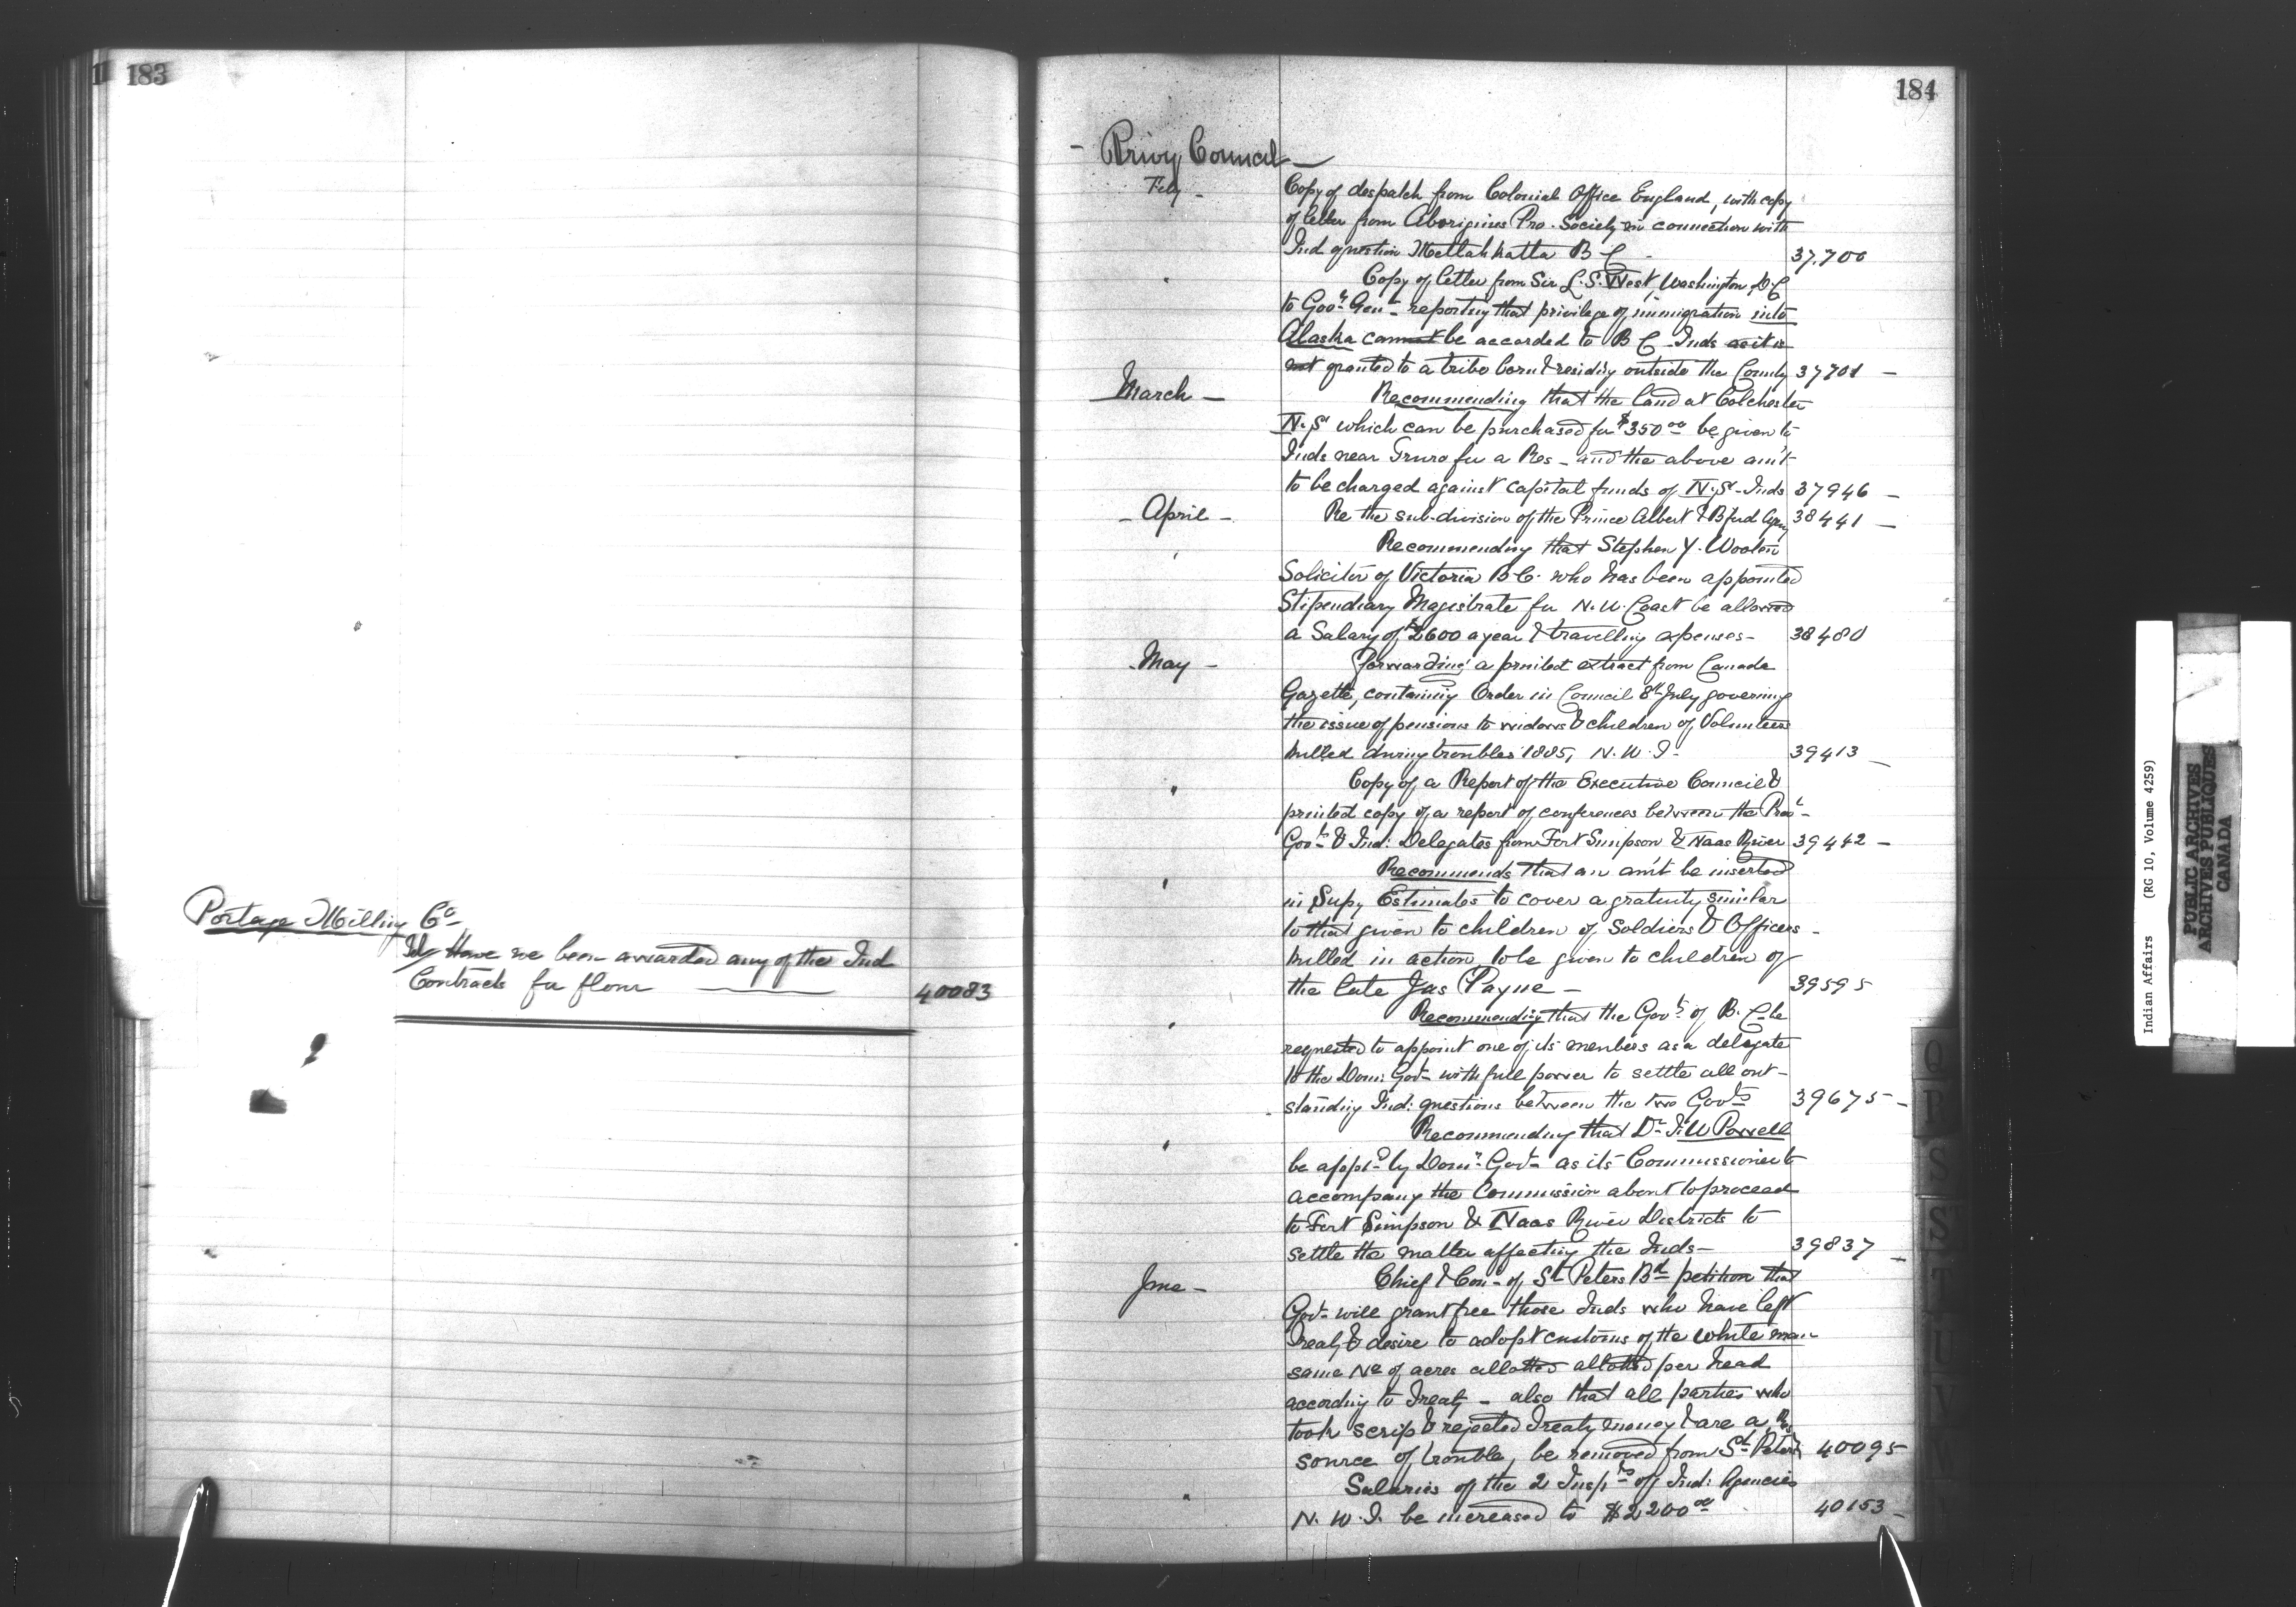 183
Portage Milling Co
Have we been awarded any of the Ind
Contracts for flour 40083
184
- Privy Council -
Feby - Copy of despatch from Colonial Office England, with copy
of letter from Aborigines Pro. Society in connection with
Ind question Metlahkatla B C - 37.700
" Copy of letter from Sir L. S. West, Washington D.C
to Govr Genl reporting that privilege of immigration into
Alaska cannot be accorded to B C Inds as it is
not granted to a tribe born & residing outside the County 37701 -
March - Recommending that the land at Colchester
N.S. which can be purchased for $350 00 be given to
Inds near Truro for a Res - and the above am't
to be charged against capital funds of N.S. Inds 37946 -
- April - Re the sub-division of the Prince Albert & Bfud Agcy 38441 -
" Recommending that Stephen Y. Wooton
Solicitor of Victoria B.C. who has been appointed
Stipendiary Magistrate for N.W. Coast be allowed
a Salary of $2600 a year & travelling expenses - 38480
- May - Forwarding a printed extract from Canada
Gazette, containing Order in Council 8th July governing
the issue of pensions to widows & children of Volunteers
killed during troubles 1885, N.W.T. 39413 -
" Copy of a Report of the Executive Council &
printed copy of a report of conferences between the Prov'l
Govt & Ind: Delegates from Fort Simpson & Naas River 39442 -
" Recommends that an am't be inserted
in Supy Estimates to cover a gratuity similar
to that given to children of Soldiers & Officers -
killed in action, to be given to children of
the late Jas Payne - 39595
" Recommending that the Govt of B. C be
requested to appoint one of its members as a delegate
to the Dom: Govt with full power to settle all out-
standing Ind: questions between the two Govts 39675 -
" Recommending that Dr I. W Powell
be app'd by Domn Govt as its Commissioner to
accompany the Commission about to proceed
to Fort Simpson & Naas River Districts to
settle the matter affecting the Inds - 39837 -
June - Chief & Con. of St Peters Bd petition that
Govt will grant free those Inds who have left
Treaty & desire to adopt customs of the white man
same No of acres allotted allotted per head
according to Treaty - also that all parties who
took scrip & rejected Treaty money & are a
source of trouble, be removed from St Peters Res 40095
" Salaries of the 2 Insp'rs of Ind: Agencies
N. W. T. be increased to $2200 00 40153 -
Q
S
S
T
U
V
Indian Affairs (RG 10, Volume 4259)
PUBLIC ARCHIVES
ARCHIVES PUBLIQUES
CANADA